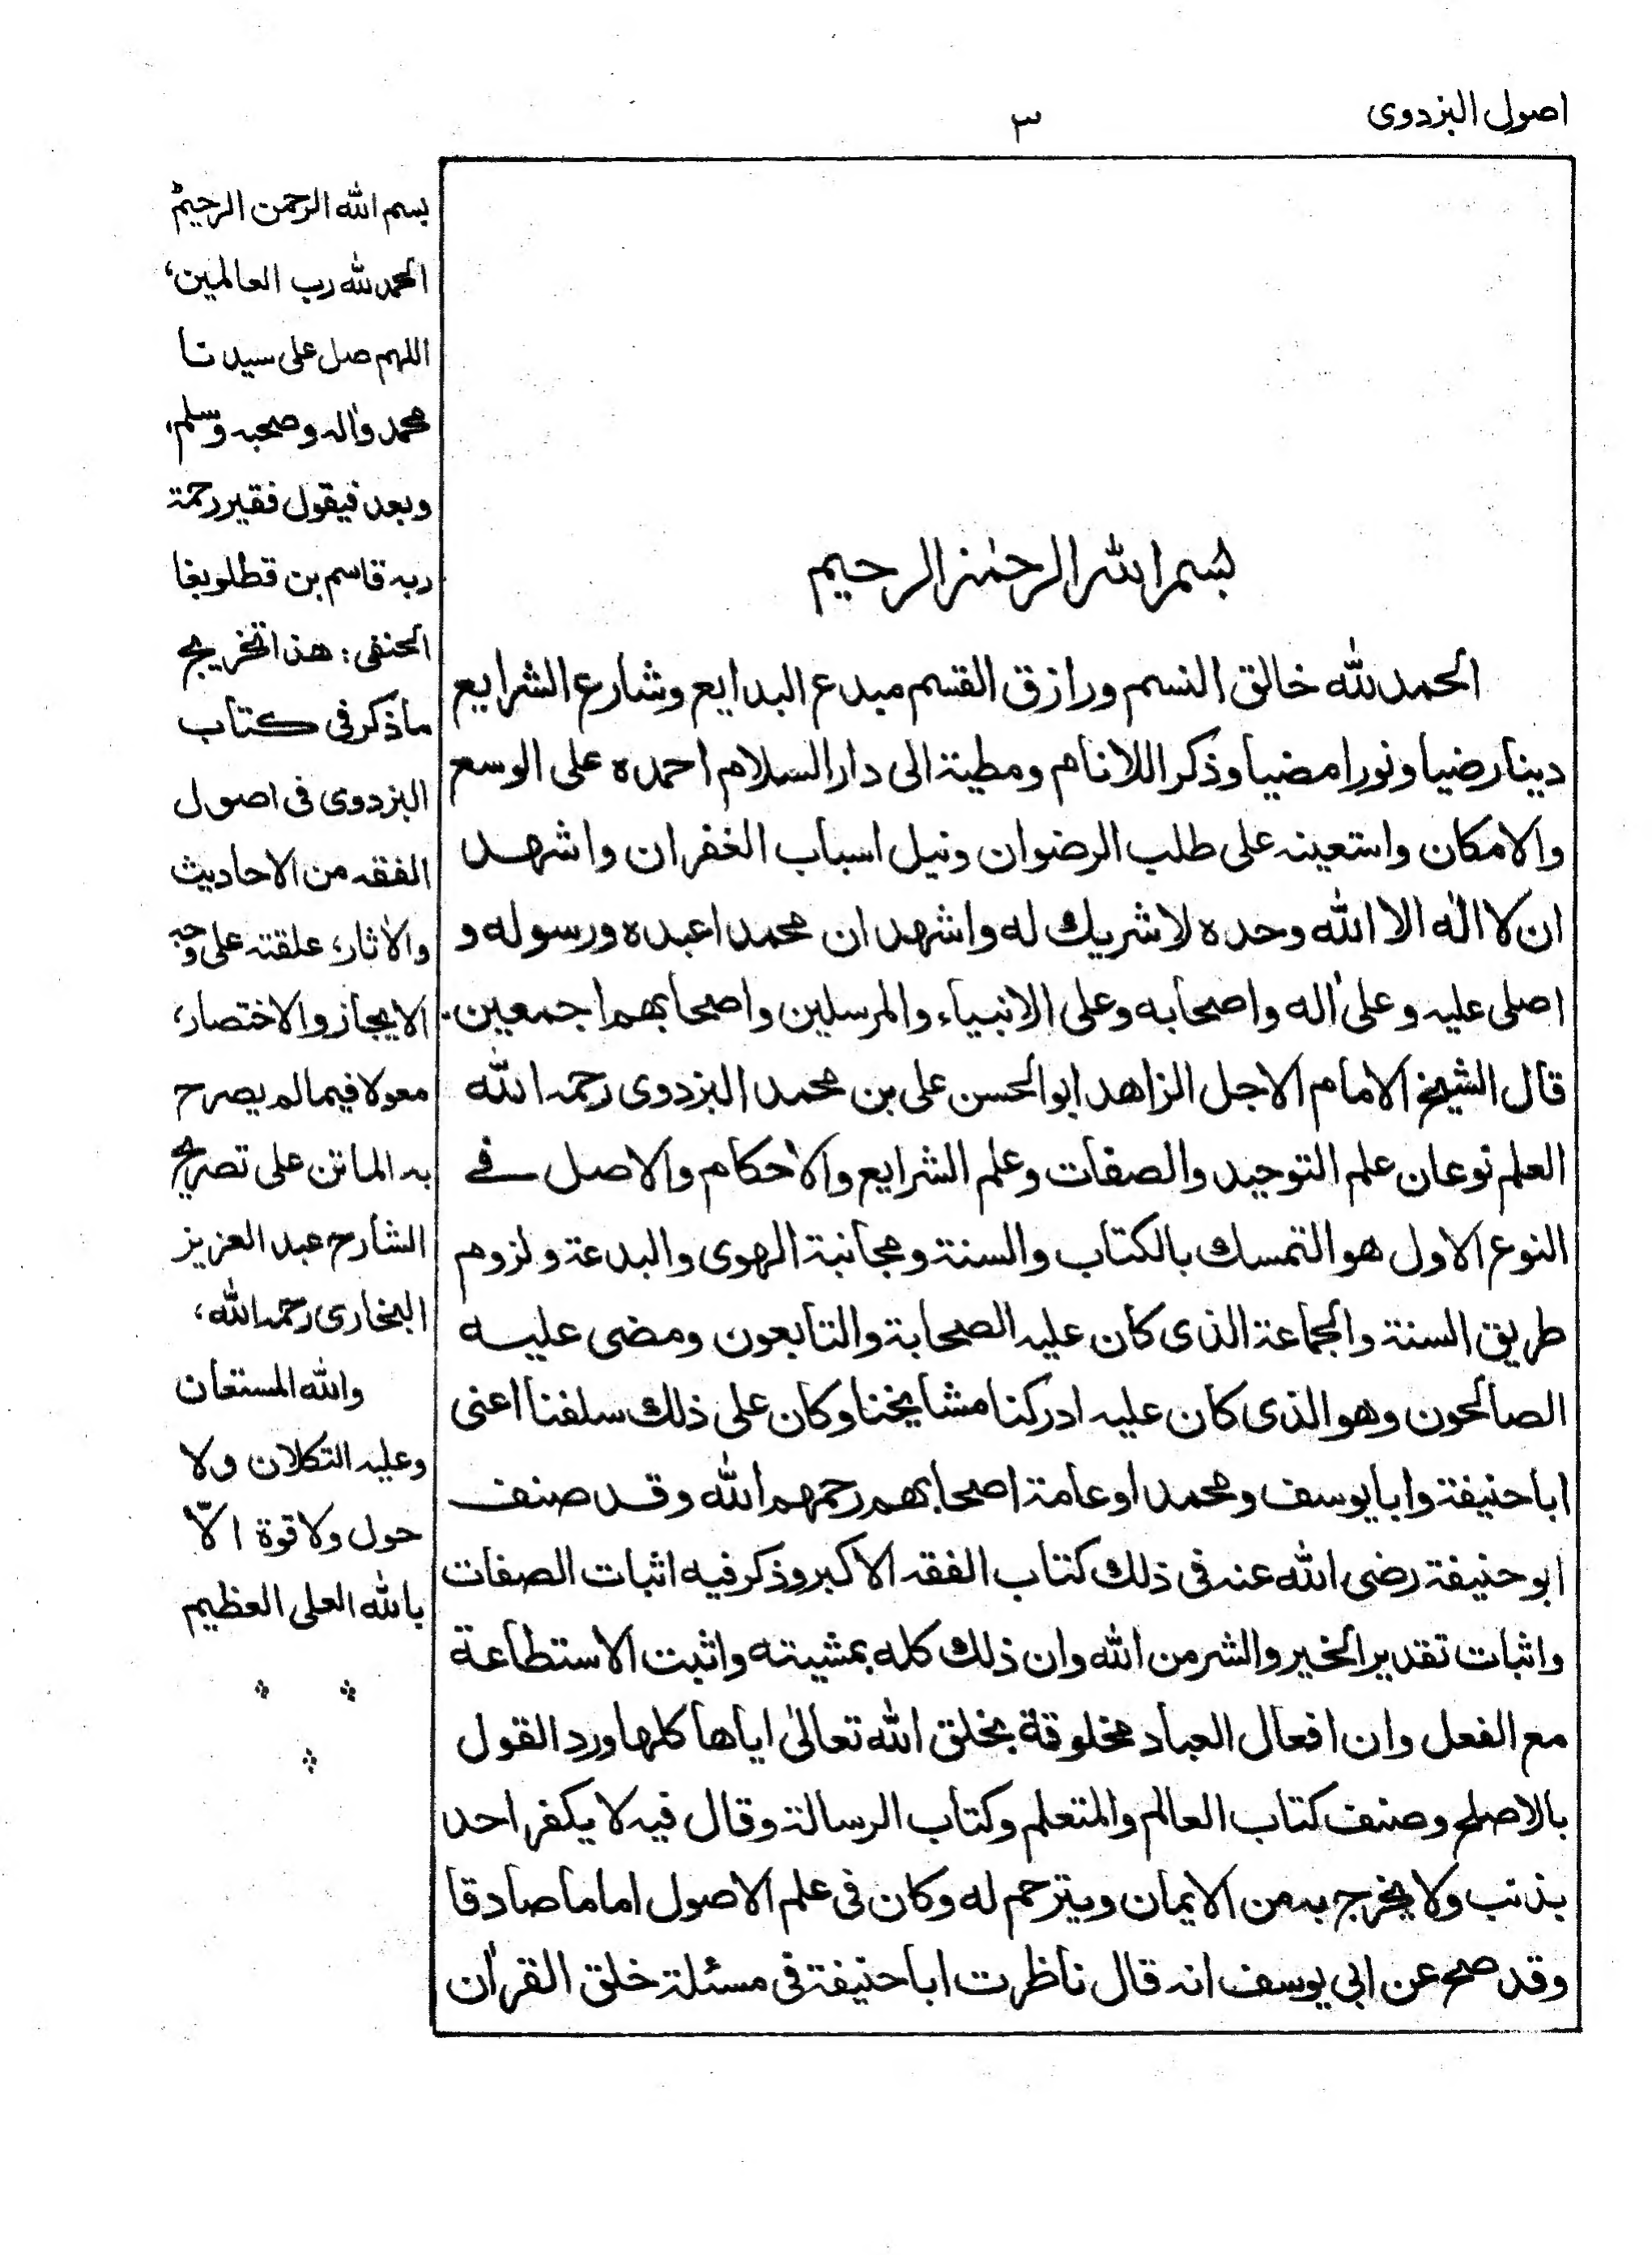 اصول البزدوى
٣
بسم الله الرحمٰن الرحيم
الحمد لله خالق النسم ورازق القسم مبدع البدايع وشارع الشرايع
دينا رضيا ونورا مضيا وذكرا للانام ومطية الى دار السلام احمده على الوسع
والامكان واستعينه على طلب الرضوان ونيل اسباب الغفران واشهد
ان لا اله الا الله وحده لا شريك له واشهد ان محمدا عبده ورسوله و
اصلى عليه وعلى اٰله واصحابه وعلى الانبياء والمرسلين واصحابهم اجمعين.
قال الشيخ الامام الاجل الزاهد ابو الحسن على بن محمد البزدوى رحمه الله
العلم نوعان علم التوحيد والصفات وعلم الشرايع والاحكام والاصل فے
النوع الاول هو التمسك بالكتاب والسنة ومجانبة الهوى والبدعة ولزوم
طريق السنة والجماعة الذى كان عليه الصحابة والتابعون ومضى عليه
الصالحون وهو الذى كان عليه ادركنا مشايخنا وكان على ذلك سلفنا اعنى
ابا حنيفة وابا يوسف ومحمدا وعامة اصحابهم رحمهم الله وقد صنف
ابو حنيفة رضى الله عنه فى ذلك كتاب الفقه الاكبر وذكر فيه اثبات الصفات
واثبات تقدير الخير والشر من الله وان ذلك كله بمشيته واثبت الاستطاعة
مع الفعل وان افعال العباد مخلوقة بخلق الله تعالىٰ اياها كلها ورد القول
بالاصلح وصنف كتاب العالم والمتعلم وكتاب الرسالة وقال فيه لا يكفر احد
بذنب ولا يخرج به من الايمان ويترحم له وكان فى علم الاصول اماما صادقا
وقد صح عن ابى يوسف انه قال ناظرت ابا حنيفة فى مسئلة خلق القراٰن
بسم الله الرحمن الرحيم
الحمد لله رب العالمين،
اللهم صل على سيدنا
محمد واٰله وصحبه وسلم،
وبعد فيقول فقير رحمة
ربه قاسم بن قطلوبغا
الحنفى: هذا تخريج
ما ذكر فى كتاب
البزدوى فى اصول
الفقه من الاحاديث
والاٰثار، علقته على وجه
الايجاز والاختصار،
معولا فيما لم يصرح
به الماتن على تصريح
الشارح عبد العزيز
البخارى رحمه الله،
والله المستعان
وعليه التكلان ولا
حول ولا قوة الّا
بالله العلى العظيم